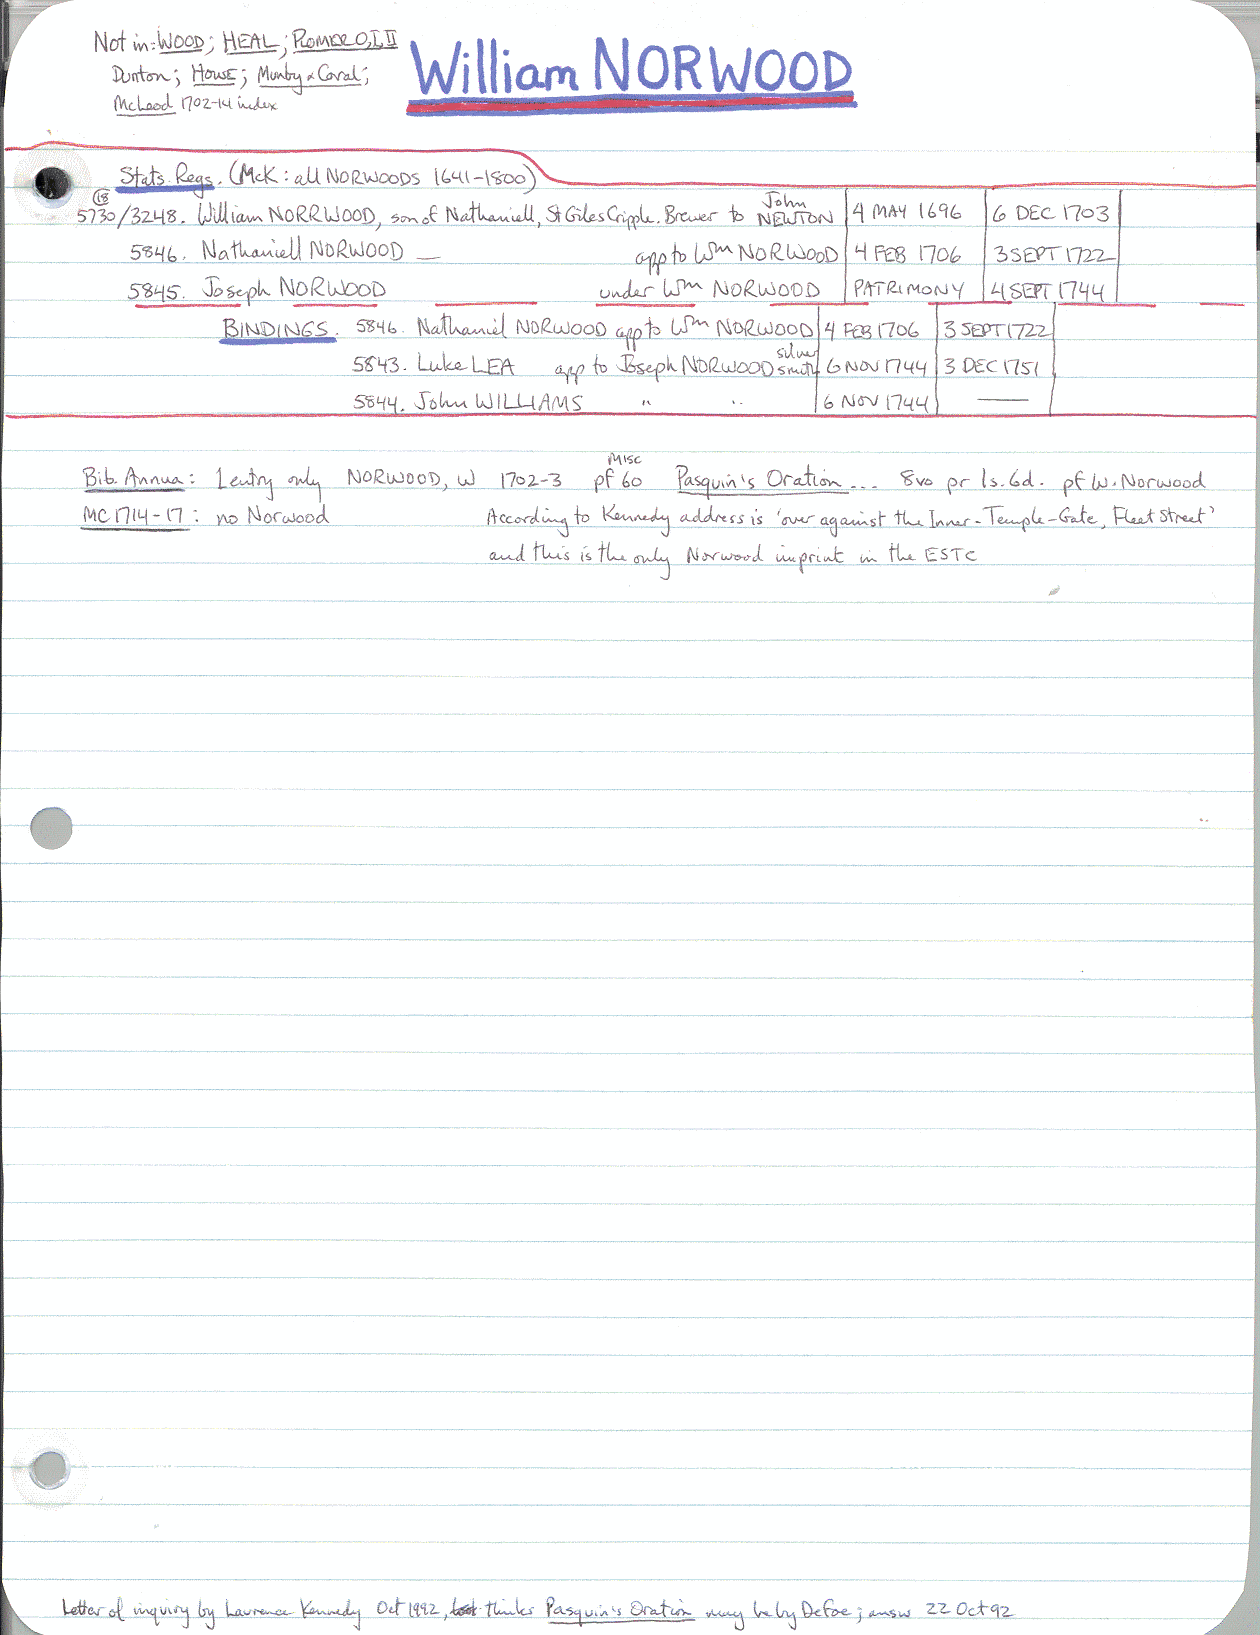 Not in: WOOD; HEAL; PLOMER O, I, II
Dunton; HOWE; Munby & Coral;
McLeod 1702-14 index
William NORWOOD
Stats. Regs. (McK: all NORWOODS 1641-1800)
5730/3248. William NORRWOOD, son of Nathaniell, St Giles Cripple. Brewer to John NEWTON 4 MAY 1696 6 DEC 1703
5846. Nathaniell NORWOOD — app to Wm NORWOOD 4 FEB 1706 3 SEPT 1722
5845. Joseph NORWOOD under Wm NORWOOD PATRIMONY 4 SEPT 1744
BINDINGS. 5846. Nathaniel NORWOOD app to Wm NORWOOD 4 FEB 1706 3 SEPT 1722
5843. Luke LEA app to Joseph NORWOOD silversmith 6 NOV 1744 3 DEC 1751
5844. John WILLIAMS " " 6 NOV 1744 —
Bib. Annua: 1 entry only NORWOOD, W 1702-3 Misc pf 60 Pasquin's Oration... 8vo pr 1s. 6d. pf W. Norwood
MC 1714-17: no Norwood According to Kennedy address is 'over against the Inner-Temple-Gate, Fleet Street'
and this is the only Norwood imprint in the ESTC
Letter of inquiry by Laurence Kennedy Oct 1992, thinks Pasquin's Oration may be by Defoe; answ 22 Oct 92